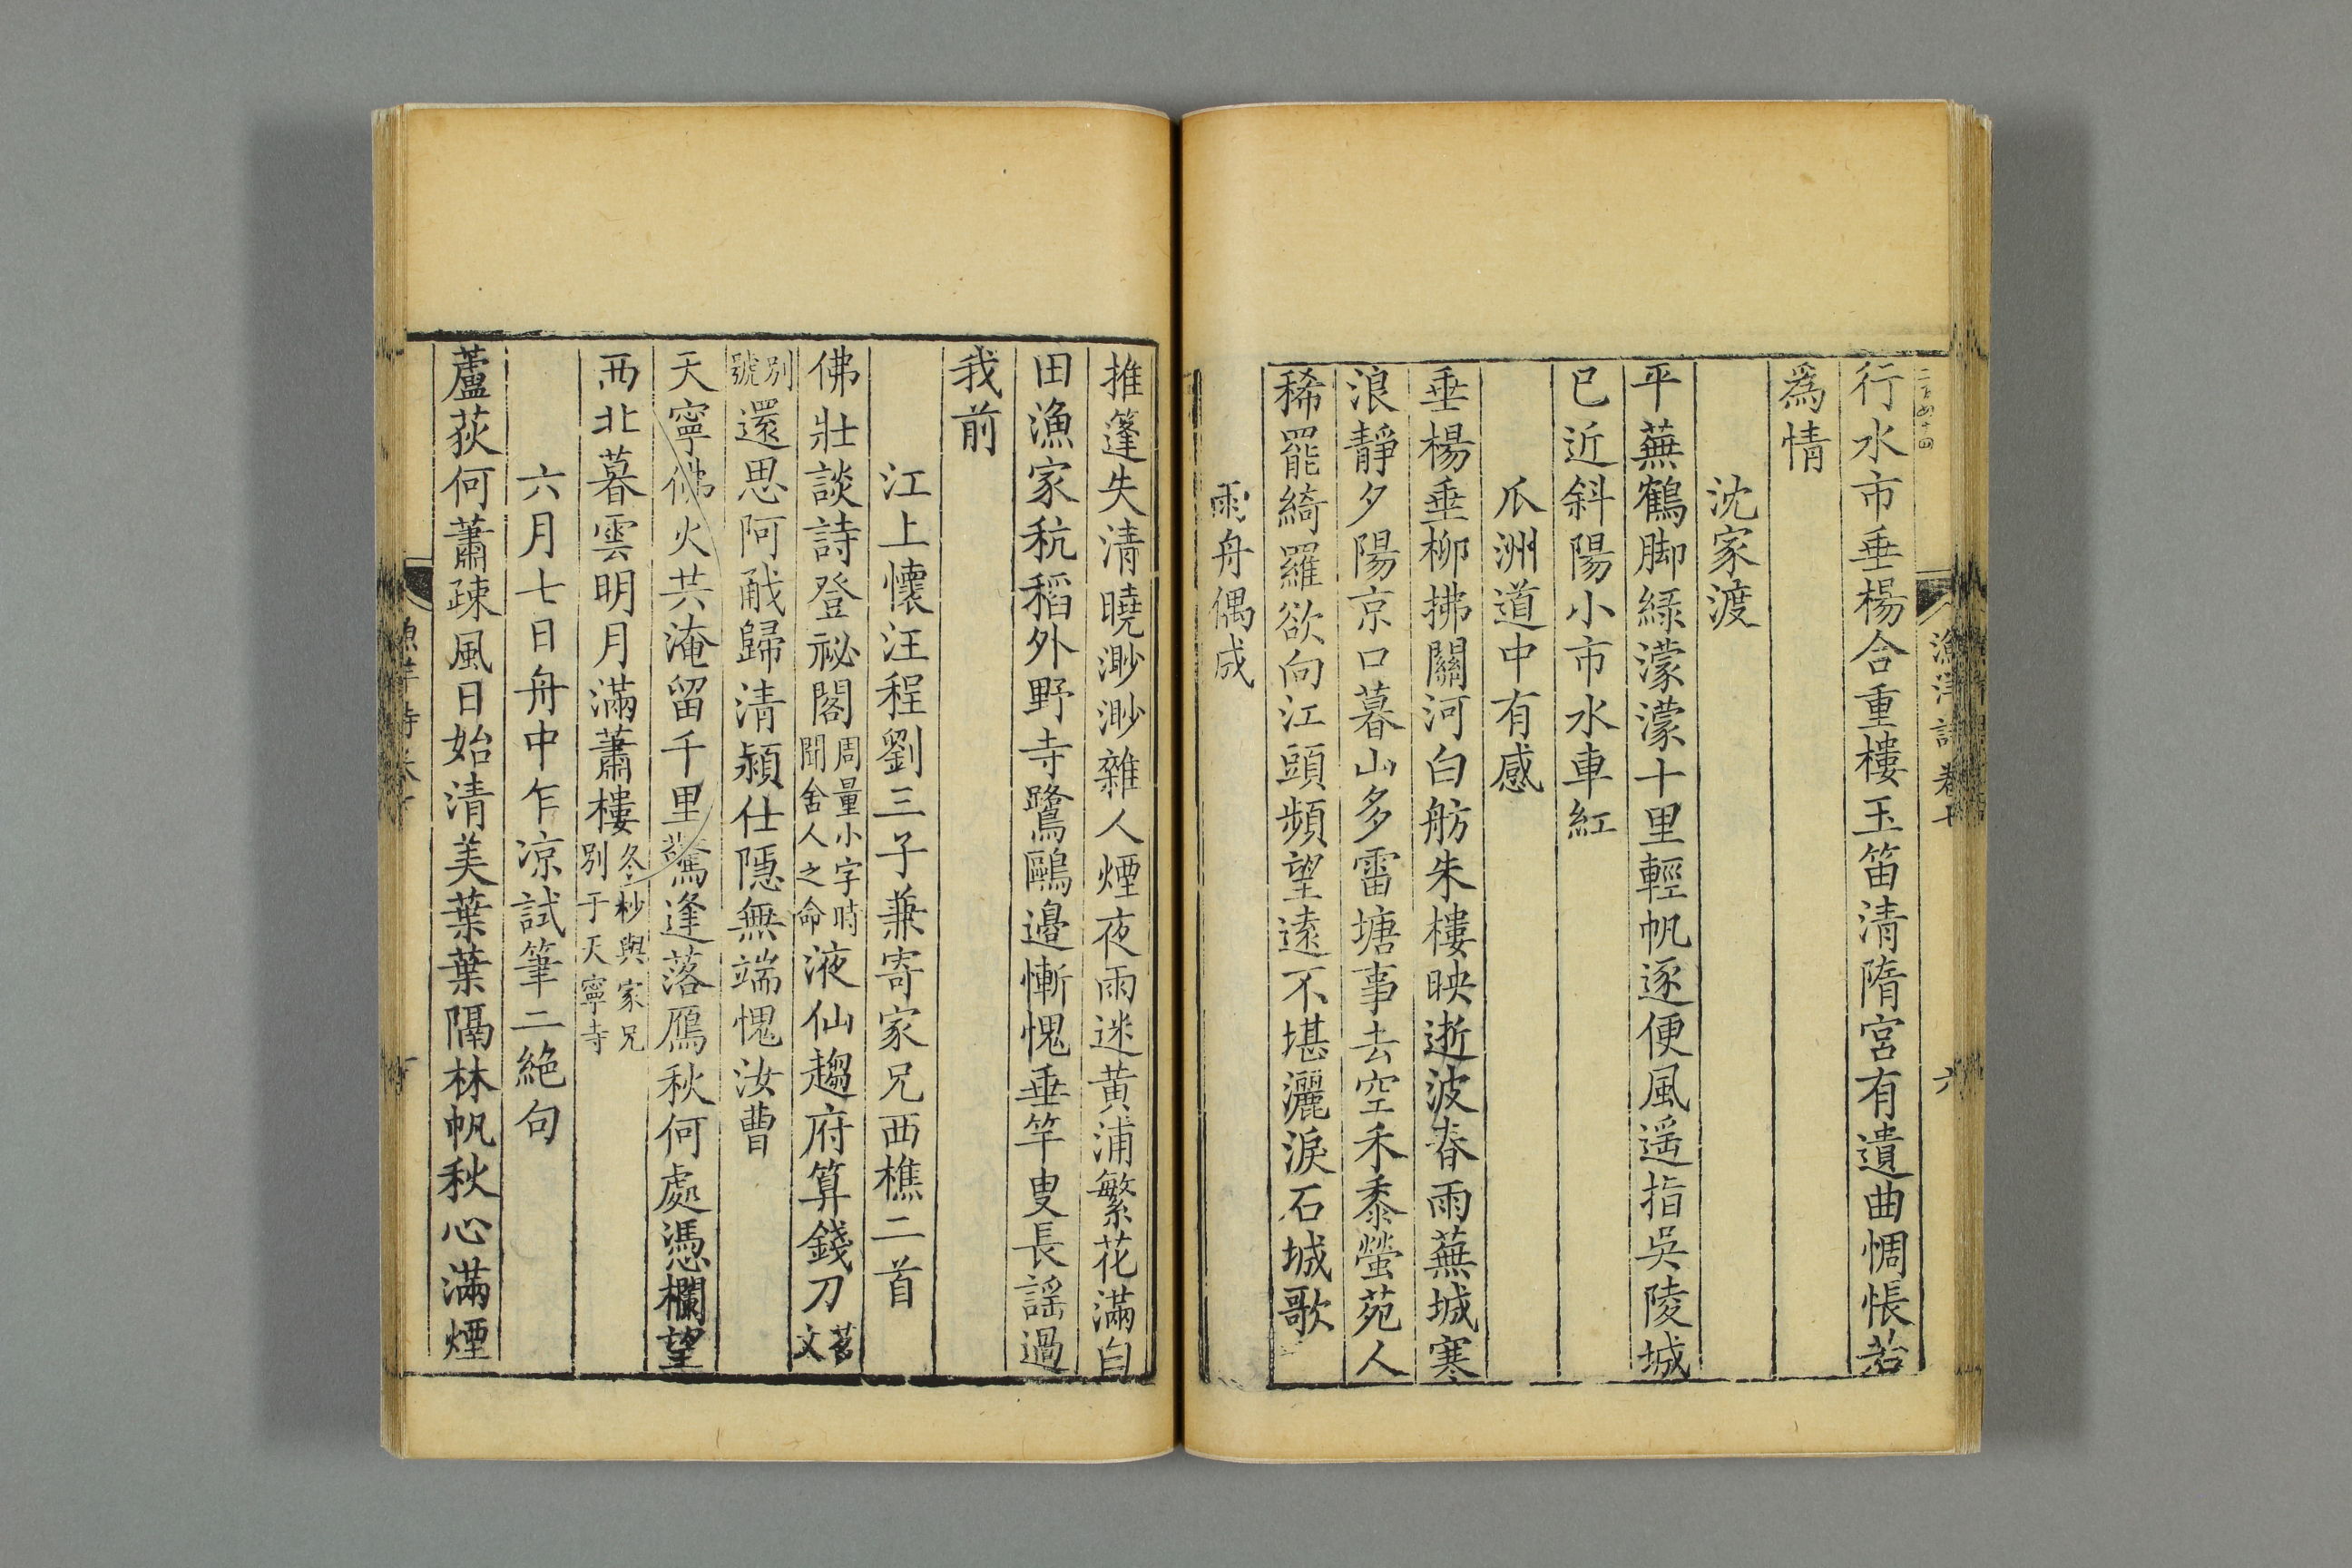 漁洋詩卷十
六
行水市垂楊合重樓玉笛清隋宮有遺曲惆悵若
為情
沈家渡
平蕪鶴脚綠濛濛十里輕帆逐便風遥指吳陵城
已近斜陽小市水車紅
瓜洲道中有感
垂楊垂柳拂關河白舫朱樓映逝波春雨蕪城寒
浪靜夕陽京口暮山多雷塘事去空禾黍螢苑人
稀罷綺羅欲向江頭頻望遠不堪灑淚石城歌
雨舟偶成
推篷失清曉渺渺雜人煙夜雨迷黃浦繁花滿白
田漁家秔稻外野寺鷺鷗邉慚愧垂竿叟長謡過
我前
江上懷汪程劉三子兼寄家兄西樵二首
佛壯談詩登祕閣周量小字時聞舍人之命液仙趨府算錢刀苕文
別號還思阿戢歸清潁仕隱無端愧汝曹
天寧佛火共淹留千里驚逢落鴈秋何處憑欄望
西北暮雲明月滿蕭樓冬杪與家兄別于天寧寺
六月七日舟中乍凉試筆二絶句
蘆荻何蕭疎風日始清美葉葉隔林帆秋心滿煙